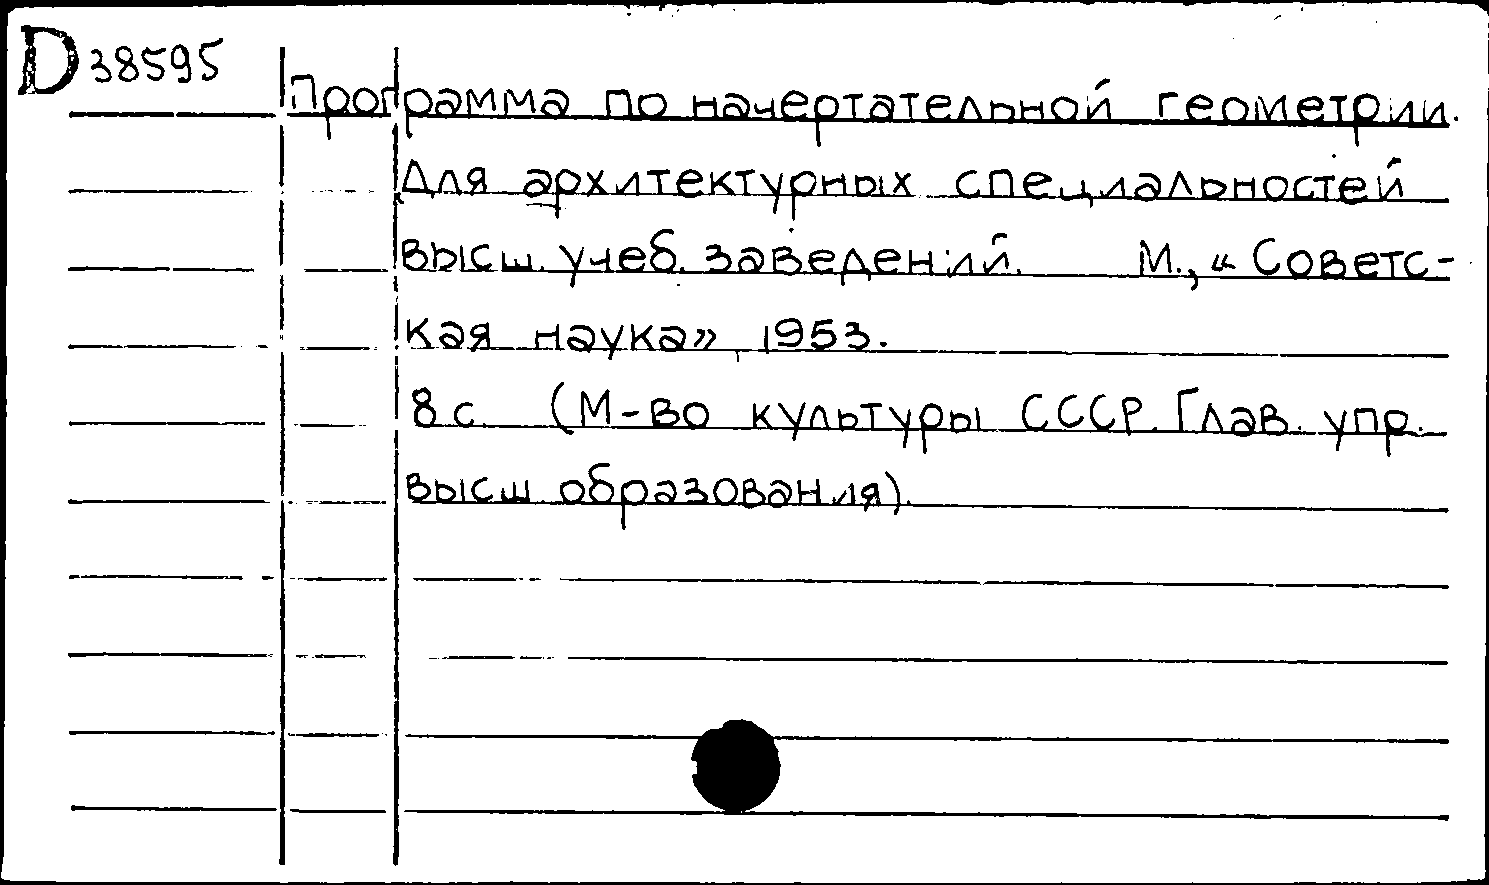 D 38595
Программа по начертательной геометрии.
Для архитектурных специальностей
высш. учеб. заведений. М., « Советс-
кая наука», 1953.
8 с. (М-во культуры СССР. Глав. упр.
высш. образования).